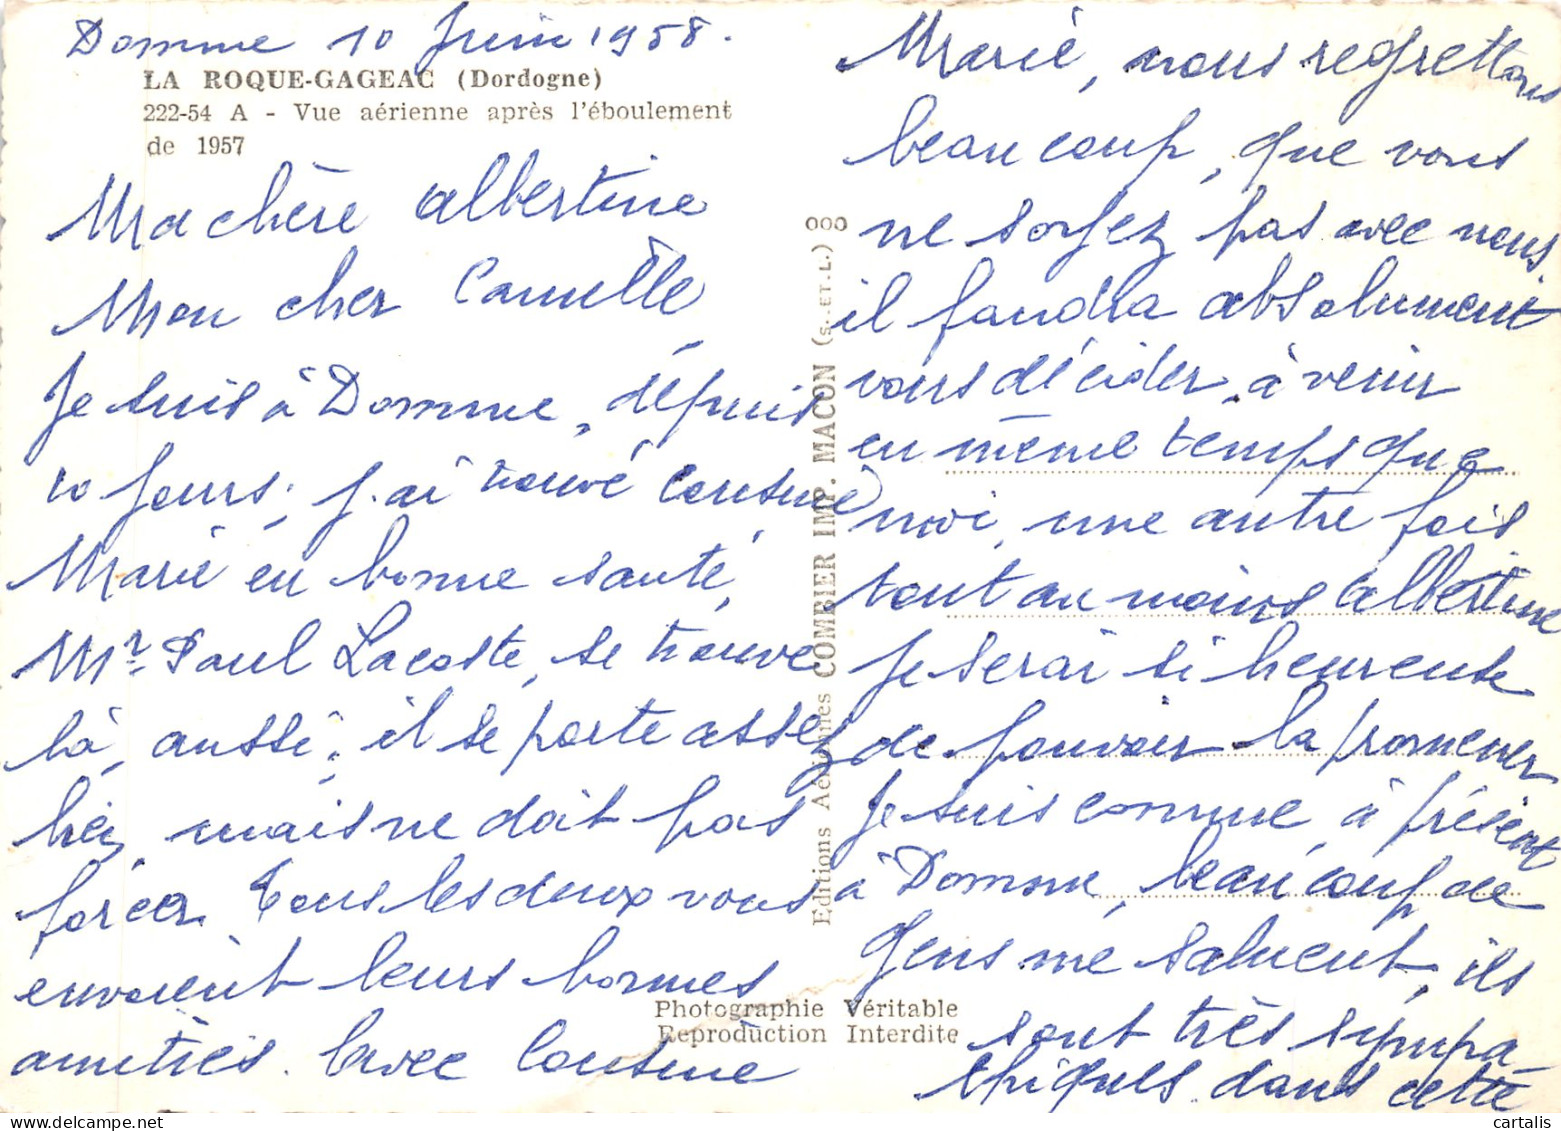 Domme 10 Juin 1958.
LA ROQUE-GAGEAC (Dordogne)
222-54 A - Vue aérienne après l'éboulement
de 1957
Ma chère albertine
Mon cher Camille,
Je suis à Domme, dépuis
10 Jours, j'ai trouvé Cousine
Marie en bonne santé,
Mr. Paul Lacoste, se trouve
là, aussi, il se porte assez
bien, mais ne doit pas
forcer. Tous les deux vous
envoient leurs bonnes
amitiés. avec Cousine
Marie, nous regrettons
beaucoup, que vous
ne soyez pas avec nous.
il faudra absolument
vous décider, à venir
en même temps que
moi, une autre fois
tout au moins albertine
Je serai si heureuse
de pouvoir la promener
Je suis comme, à présent
à Domme, beaucoup de
Gens me saluent, ils
sont très sympa
thiques dans cette
Editions Aériennes COMBIER IMP. MACON (S.-ET-L.) 000
Photographie Véritable
Reproduction Interdite
cartalis.com